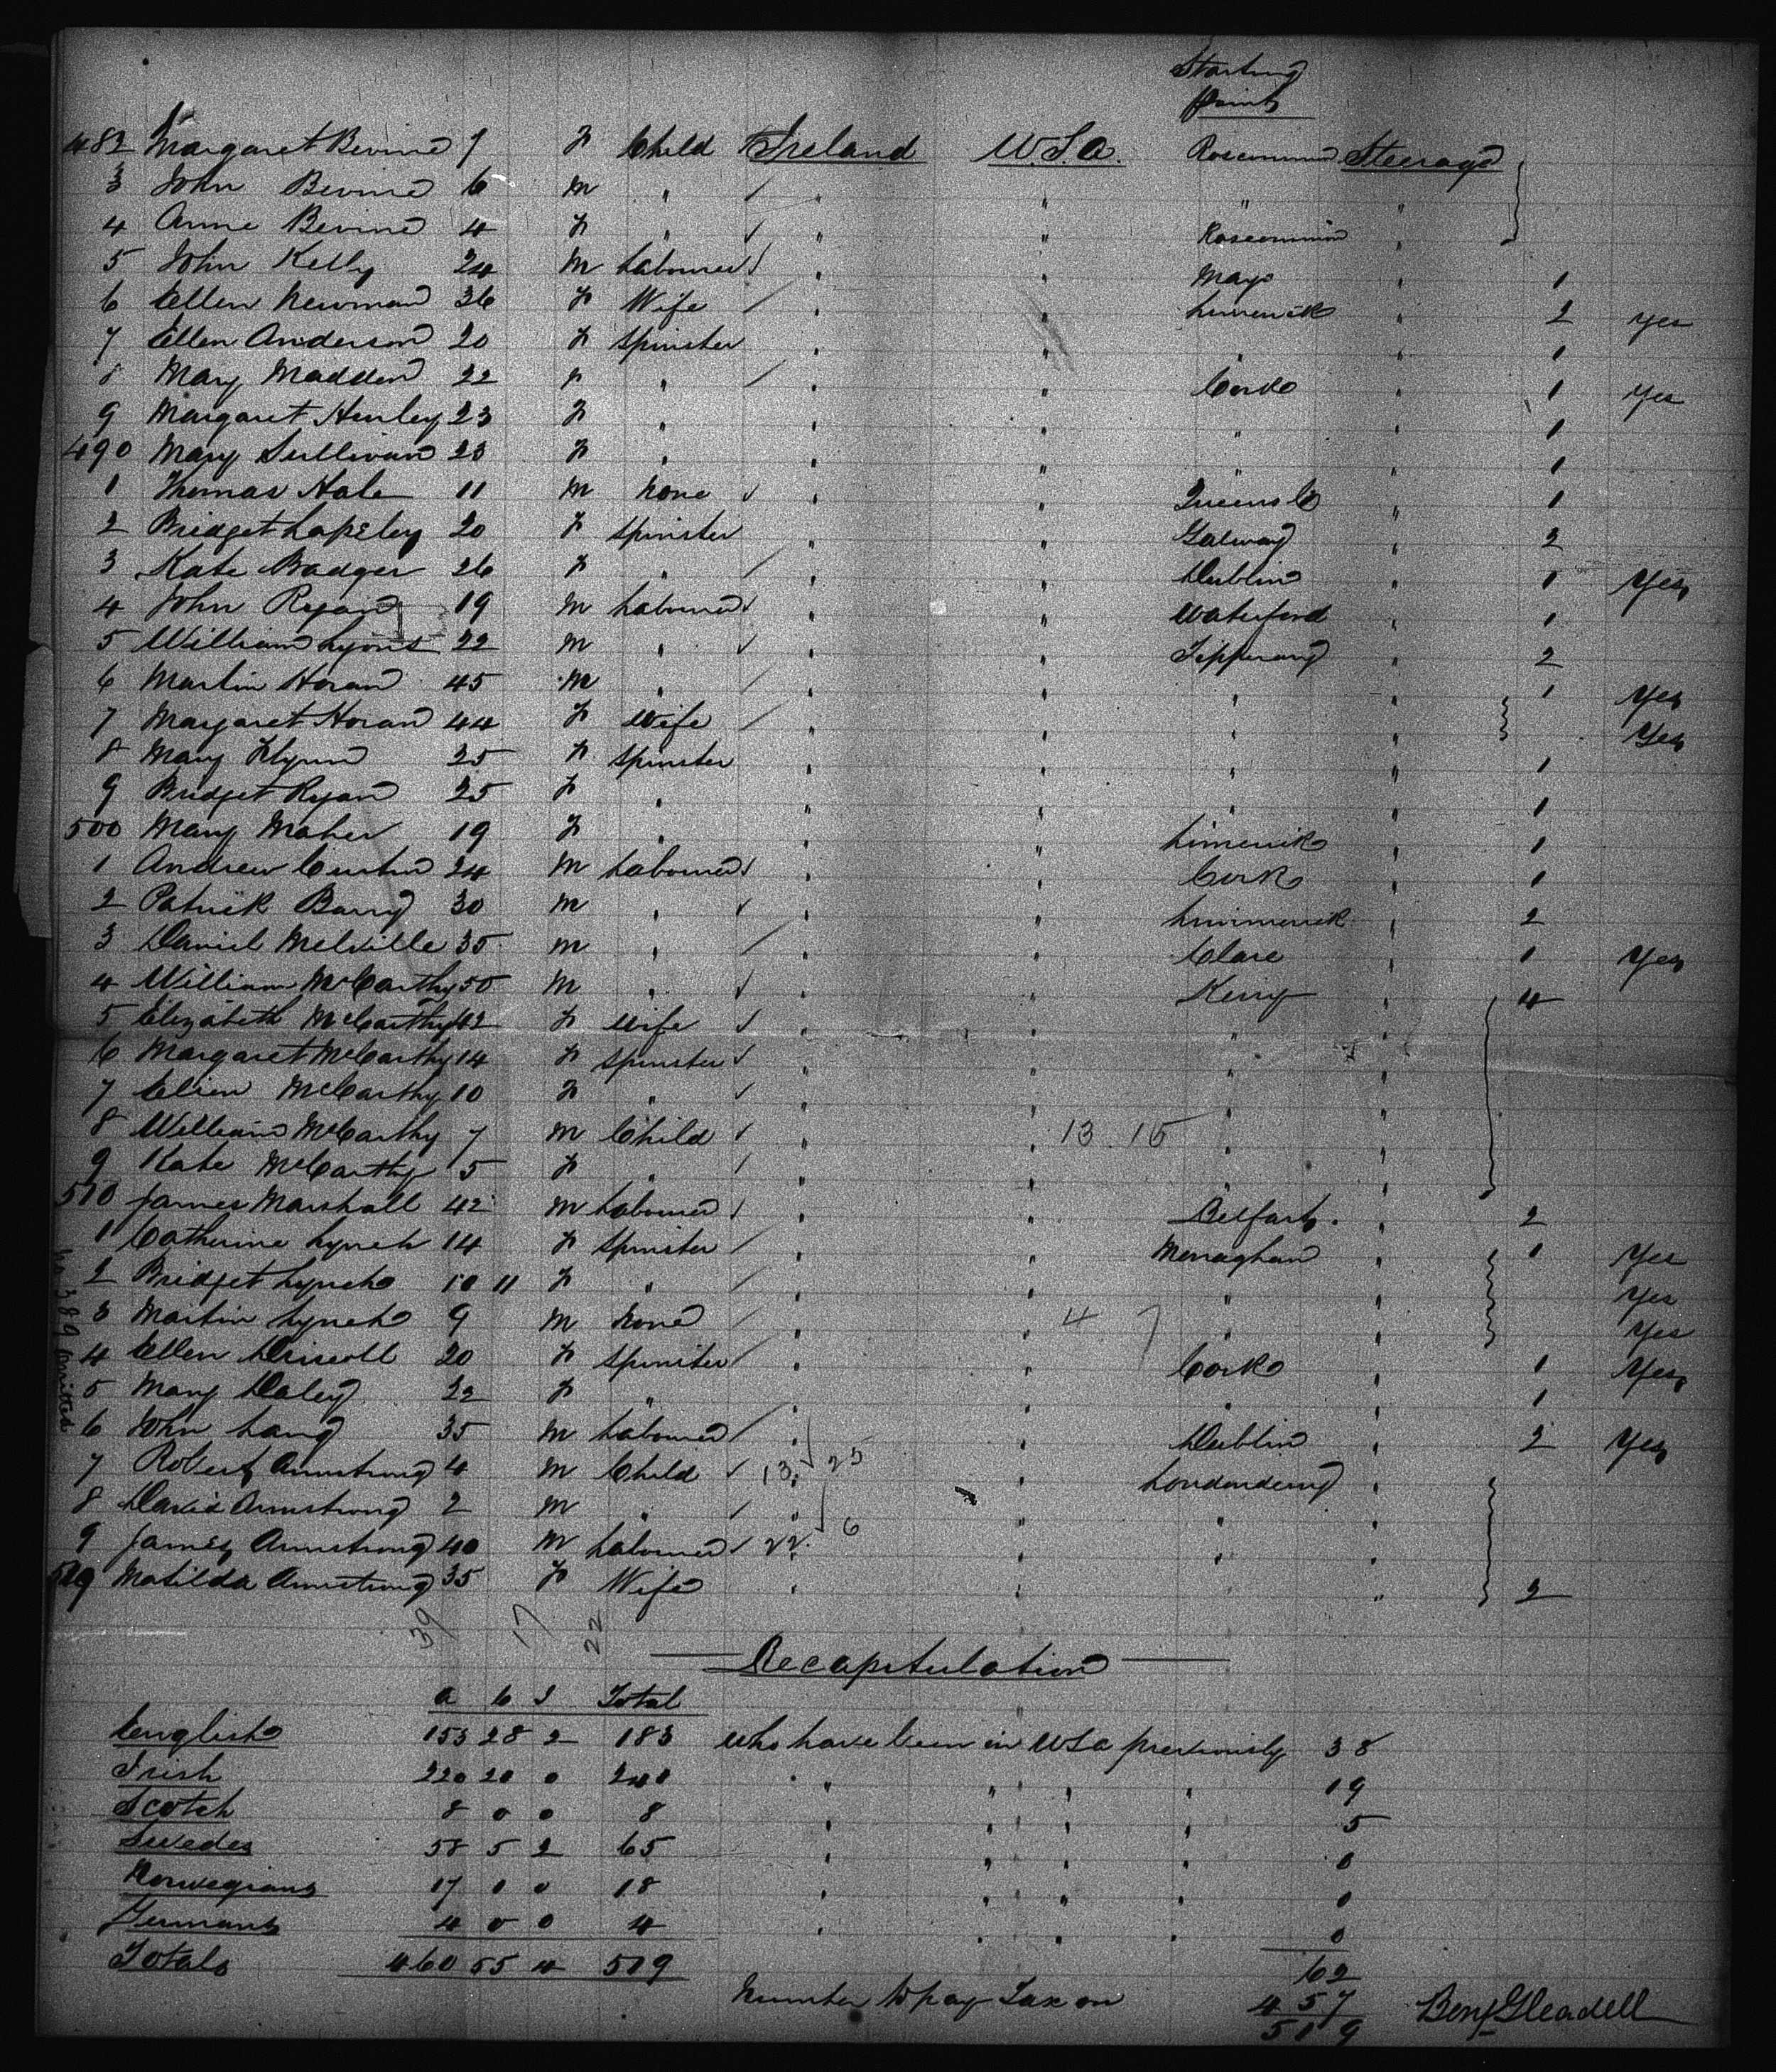 Starting
Point
482 Margaret Bevins 7 F Child Ireland U.S.A. Roscommon Steerage
3 John Bevins 6 M " " " " "
4 Anne Bevins 4 F " " " Roscommon "
5 John Kelly 24 M Labourer " " Mayo " 1
6 Ellen Newman 36 F Wife " " Limerick " 2 yes
7 Ellen Anderson 20 F Spinster " " " " 1
8 Mary Madden 22 F " " " Cork " 1 yes
9 Margaret Hurley 23 F " " " " " 1
490 Mary Sullivan 23 F " " " " " 1
1 Thomas Hale 11 M None " " Queens Co " 1
2 Bridget 20 F Spinster " " Galway " 2
3 Kate Badger 26 F " " " Dublin " 1 Yes
4 John Ryan 19 M Labourer " " Waterford " 1
5 William Lyons 22 M " " " Tipperary " 2
6 Martin Horan 45 M " " " " " 1 Yes
7 Margaret Horan 44 F Wife " " " " Yes
8 Mary Flynn 25 F Spinster " " " " 1
9 Bridget Ryan 25 F " " " " " 1
500 Mary Maher 19 F " " " Limerick " 1
1 Andrew Curtin 24 M Labourer " " Cork " 1
2 Patrick Barry 30 M " " " Limmerick " 2
3 Daniel Melville 35 M " " " Clare " 1 Yes
4 William McCarthy 50 M " " " Kerry " 4
5 Elizabeth McCarthy 42 F Wife " " " "
6 Margaret McCarthy 14 F Spinster " " " "
7 Ellen McCarthy 10 F " " " " "
8 William McCarthy 7 M Child " " 13.15 " "
9 Kate McCarthy 5 F " " " " "
510 James Marshall 42 M Labourer " " Belfast. " 2
1 Catherine Lynch 14 F Spinster " " Monaghan " 1 Yes
2 Bridget Lynch 10 11 F " " " " " Yes
3 Martin Lynch 9 M None " " 4 7 " " Yes
4 Ellen Driscoll 20 F Spinster " " Cork " 1 Yes
5 Mary Daley 22 F " " " " " 1
6 John Lang 35 M Labourer " " Dublin " 2 Yes
7 Robert Armstrong 4 M Child 13 " 25 " Londonderry "
8 David Armstrong 2 M " " " " "
9 James Armstrong 40 M Labourer 22 6 " " "
Matilda Armstrong 35 F Wife " " " 2
No 389 omitted
39 17 22
Recapitulation
a c I Total
English 153 28 2 183 who have been in USA previously 38
Irish 220 20 0 240 " " " " " 19
Scotch 8 0 0 8 " " " " 5
Swedes 58 5 2 65 " " " " 0
Norwegians 17 1 0 18 " " " " 0
Germans 4 0 0 4 " " " " 0
Totals 460 55 4 519 62
Number to pay Tax on 457
519
Benj Gleadell